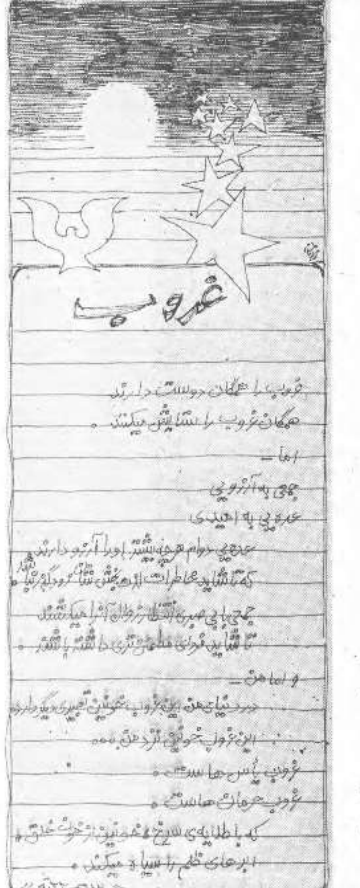 غروب
غروب را همگان دوست دارند
همگان غروب را ستایش میکنند .
اما ـ
جمعی به آرزویی
عده یی به امیدی
عده یی دوام هرچه بیشتر اورا آرزو دارند
که تا شاید خاطرات
جمعی با بی صبری انتظار زوال آنرا میکشند
تا شاید فردای مطمئن تری داشته باشند .
و اما من ـ
در دنیای من این غروب خونین تعبیری دیگر دارد
این غروب خونین نزد من ...
غروب یأس هاست .
غروب حرمان هاست .
که با طلایه‌ی سرخ و خونین از خون خلق ،
ابرهای ظلم را سیاه میکند .